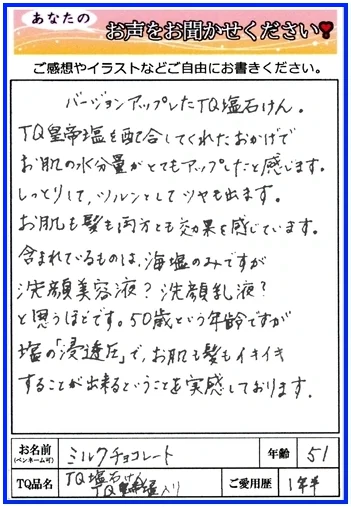 あなたの
お声をお聞かせください❣
ご感想やイラストなどご自由にお書きください。
バージョンアップしたTQ塩石けん。
TQ皇帝塩を配合してくれたおかげで
お肌の水分量がとてもアップしたと感じます。
しっとりして、ツルンとしてツヤも出ます。
お肌も髪も両方とも効果を感じています。
含まれているものは、海塩のみですが
洗顔美容液？洗顔乳液？
と思うほどです。50歳という年齢ですが
塩の「浸透圧」で、お肌も髪もイキイキ
することが出来るということを実感しております。
お名前 (ペンネーム可) ミルクチョコレート 年齢 51
TQ品名 TQ塩石けん TQ皇帝塩入り ご愛用歴 1年半